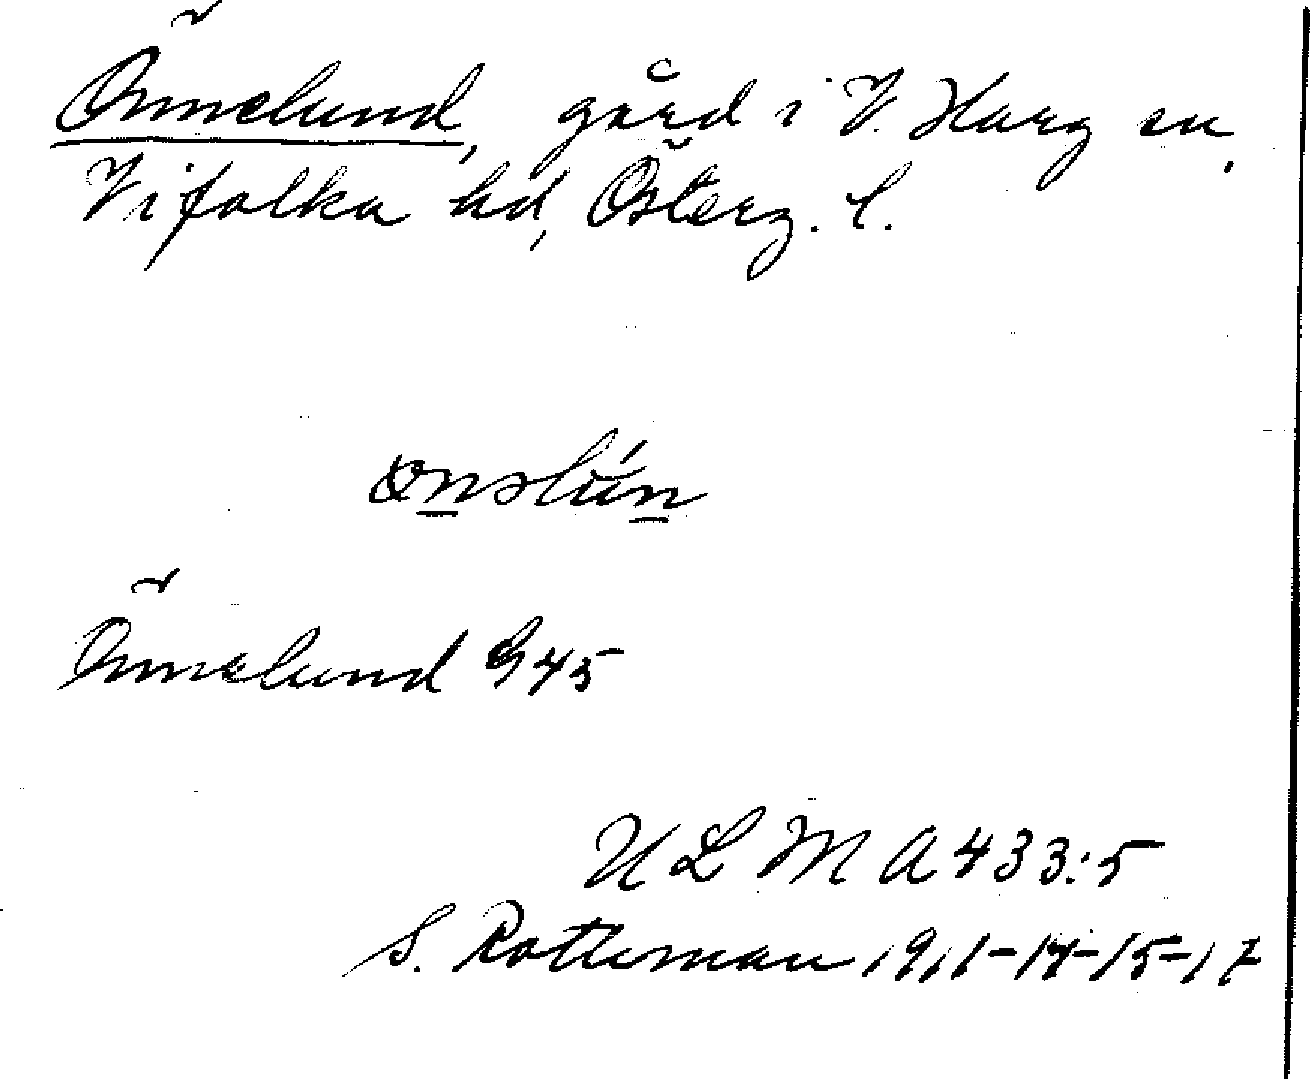 Önnelund, gård i V. Harg sn,
Vifolka hd, Österg. l.
Önnelund G45
ULMA 433:5
S. Rothman 1911-14-15-17